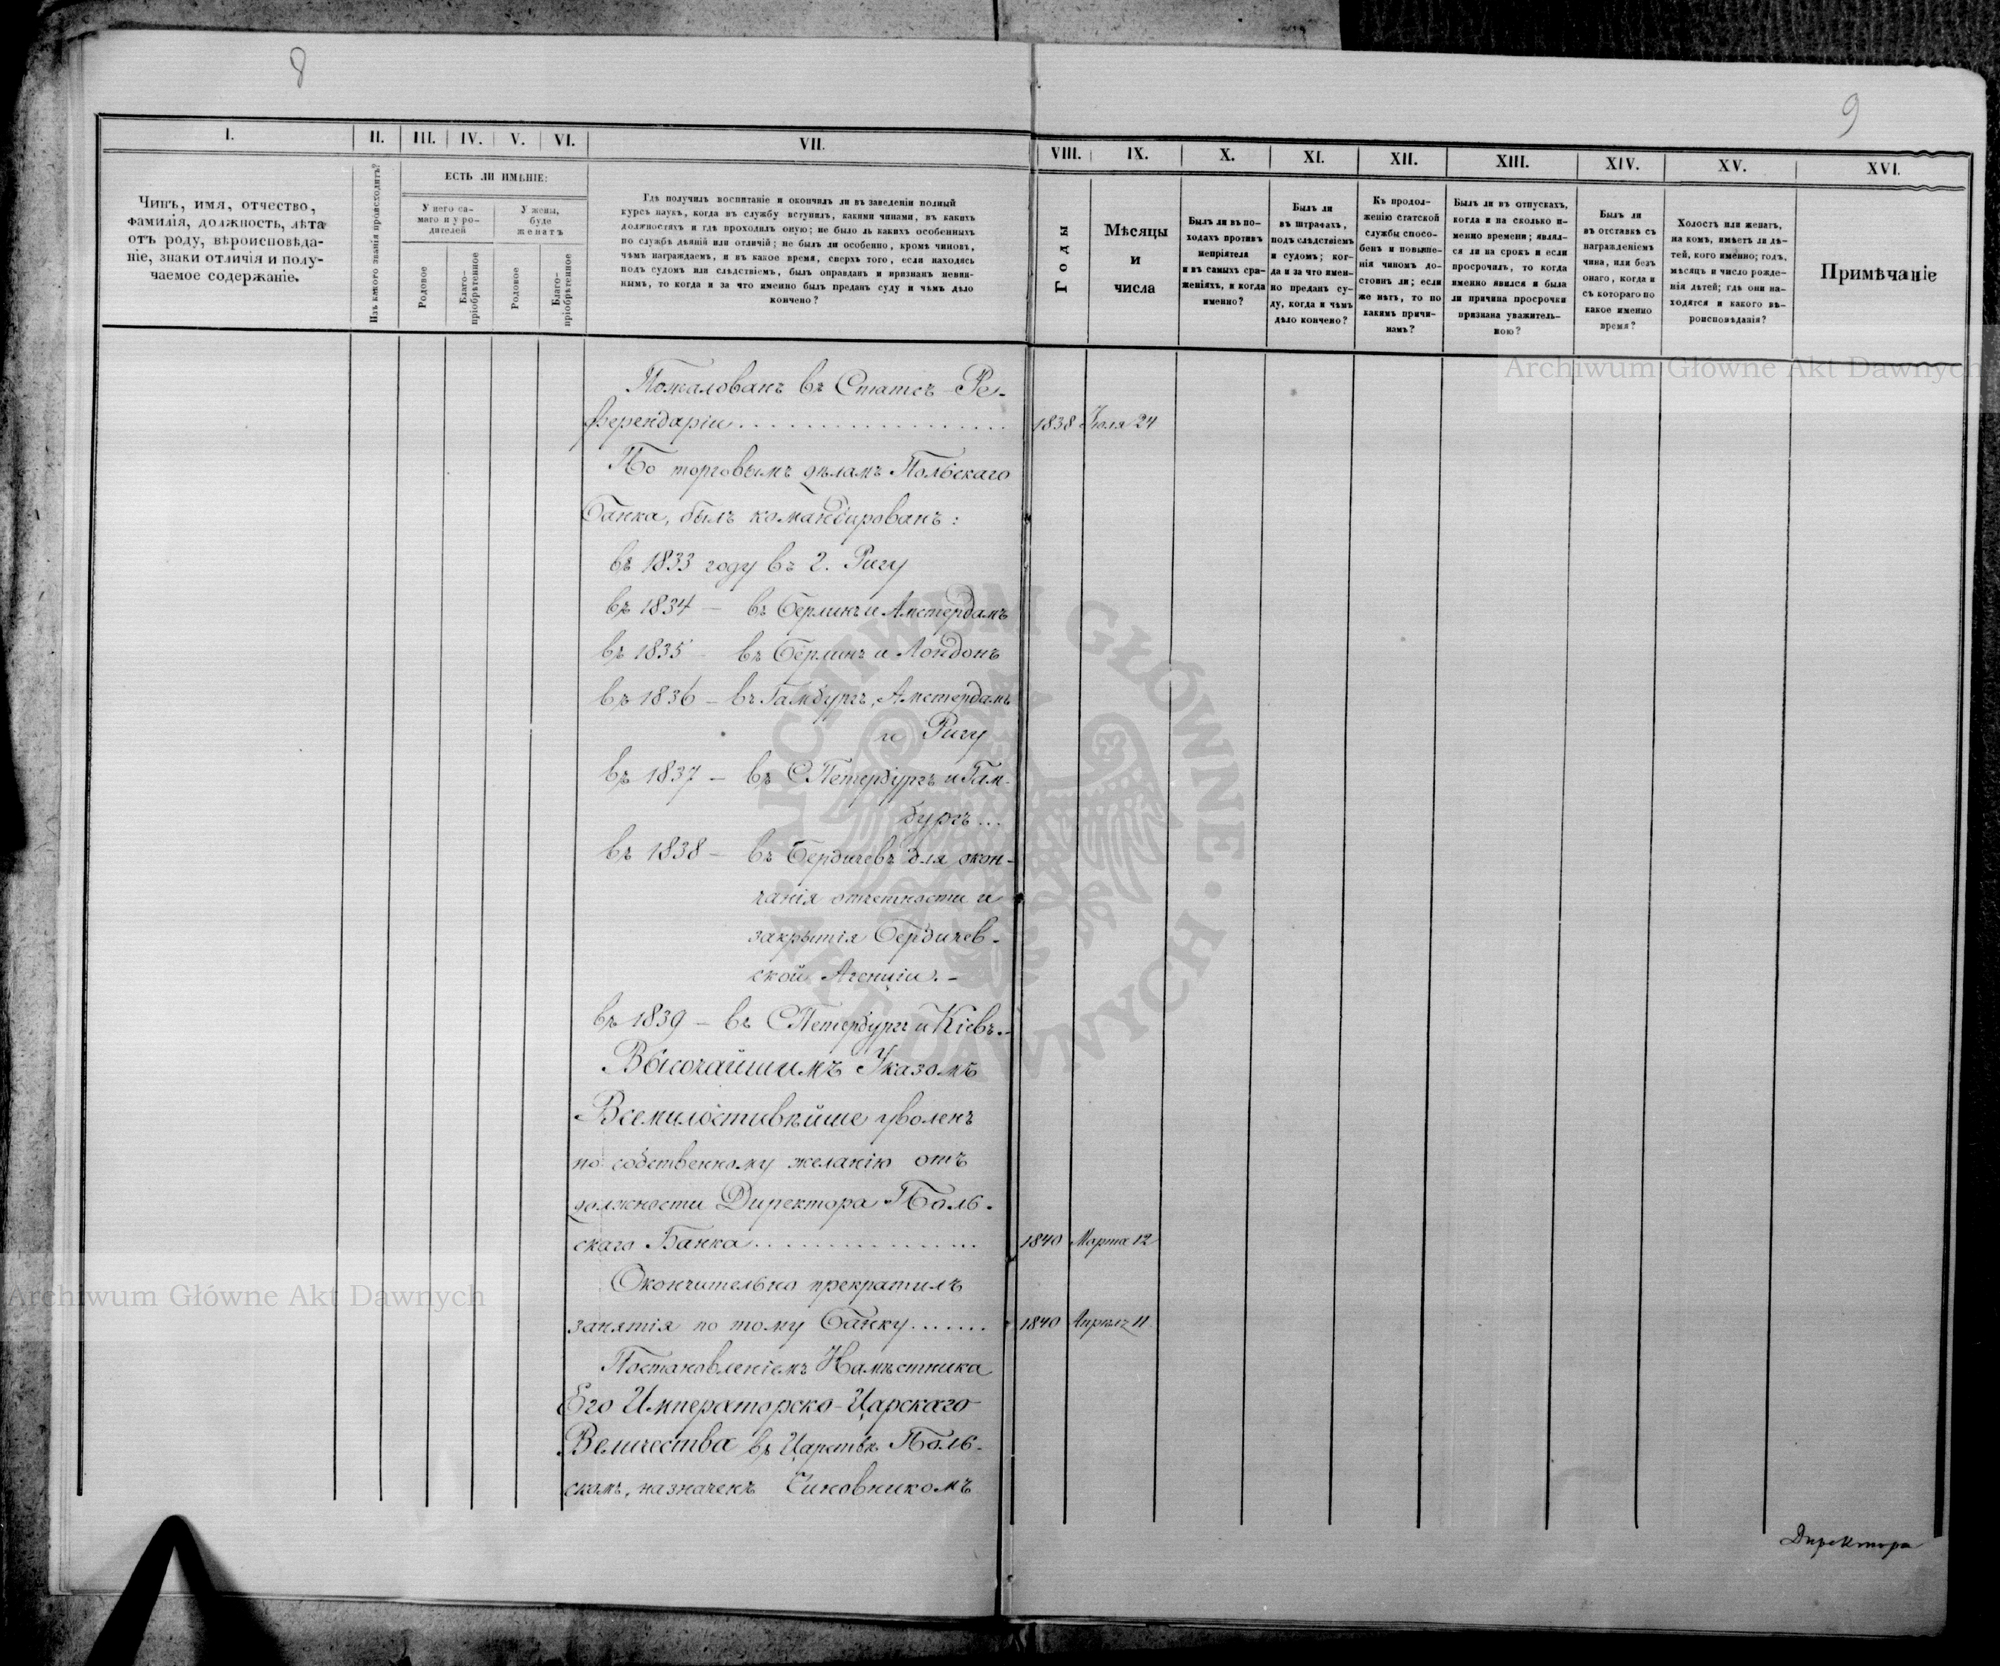 8
9
I.
II.
III.
IV.
V.
VI.
VII.
VIII.
IX.
X.
XI.
XII.
XIII.
XIV.
XV.
XVI.
Чинъ, имя, отчество,
фамилія, должность, лѣта
отъ роду, вѣроисповѣда-
ніе, знаки отличія и полу-
чаемое содержаніе.
Изъ какого званія происходитъ?
ЕСТЬ ЛИ ИМѢНІЕ:
У него са-
маго и у ро-
дителей
У жены,
буде
женатъ
Родовое
Благо-
пріобрѣтенное
Родовое
Благо-
пріобрѣтенное
Гдѣ получилъ воспитаніе и окончилъ ли въ заведеніи полный
курсъ наукъ, когда въ службу вступилъ, какими чинами, въ какихъ
должностяхъ и гдѣ проходилъ оную; не было ль какихъ особенныхъ
по службѣ дѣяній или отличій; не былъ ли особенно, кромѣ чиновъ,
чѣмъ награждаемъ, и въ какое время, сверхъ того, если находясь
подъ судомъ или слѣдствіемъ, былъ оправданъ и признанъ невин-
нымъ, то когда и за что именно былъ преданъ суду и чѣмъ дѣло
кончено?
Годы
Мѣсяцы
и
числа
Былъ ли въ по-
ходахъ противъ
непріятеля
и въ самыхъ сра-
женіяхъ, и когда
именно?
Былъ ли
въ штрафахъ,
подъ слѣдствіемъ
и судомъ; ког-
да и за что имен-
но преданъ су-
ду, когда и чѣмъ
дѣло кончено?
Къ продол-
женію статской
службы спосо-
бенъ и повыше-
нія чиномъ до-
стоинъ ли; если
же нѣтъ, то по
какимъ причи-
намъ?
Былъ ли въ отпускахъ,
когда и на сколько и-
менно времени; являл-
ся ли на срокъ и если
просрочилъ, то когда
именно явился и была
ли причина просрочки
признана уважитель-
ною?
Былъ ли
въ отставкѣ съ
награжденіемъ
чина, или безъ
онаго, когда и
съ котораго по
какое именно
время?
Холостъ или женатъ,
на комъ, имѣетъ ли дѣ-
тей, кого именно; годъ,
мѣсяцъ и число рожде-
нія дѣтей; гдѣ они на-
ходятся и какого вѣ-
роисповѣданія?
Примѣчаніе
Archiwum Główne Akt Dawnych
Пожалованъ въ Статсъ-Ре-
ферендаріи . . . . . . . . . . . . . . . . . . . 1838 Іюля 24
По торговымъ дѣламъ Польскаго
Банка, былъ командированъ:
въ 1833 году въ г. Ригу
въ 1834 — въ Берлинъ и Амстердамъ
въ 1835 — въ Берлинъ и Лондонъ
въ 1836 — въ Гамбургъ, Амстердамъ
и Ригу
въ 1837 — въ СПетербургъ и Гам-
бургъ...
въ 1838 — въ Бердичевъ для окон-
чанія отчетности и
закрытія Бердичев-
ской Агенціи. —
въ 1839 — въ СПетербургъ и Кіевъ. —
Высочайшимъ Указомъ
Всемилостивѣйше уволенъ
по собственному желанію отъ
должности Директора Поль-
скаго Банка . . . . . . . . . . . . . . . . 1840 Марта 12
Окончительно прекратилъ
занятія по тому Банку . . . . . . . 1840 Апрѣль 11.
Постановленіемъ Намѣстника
Его Императорско-Царскаго
Величества въ Царствѣ Поль-
скомъ, назначенъ Чиновникомъ
Директора
ARCHIWUM GŁÓWNE AKT DAWNYCH
Archiwum Główne Akt Dawnych